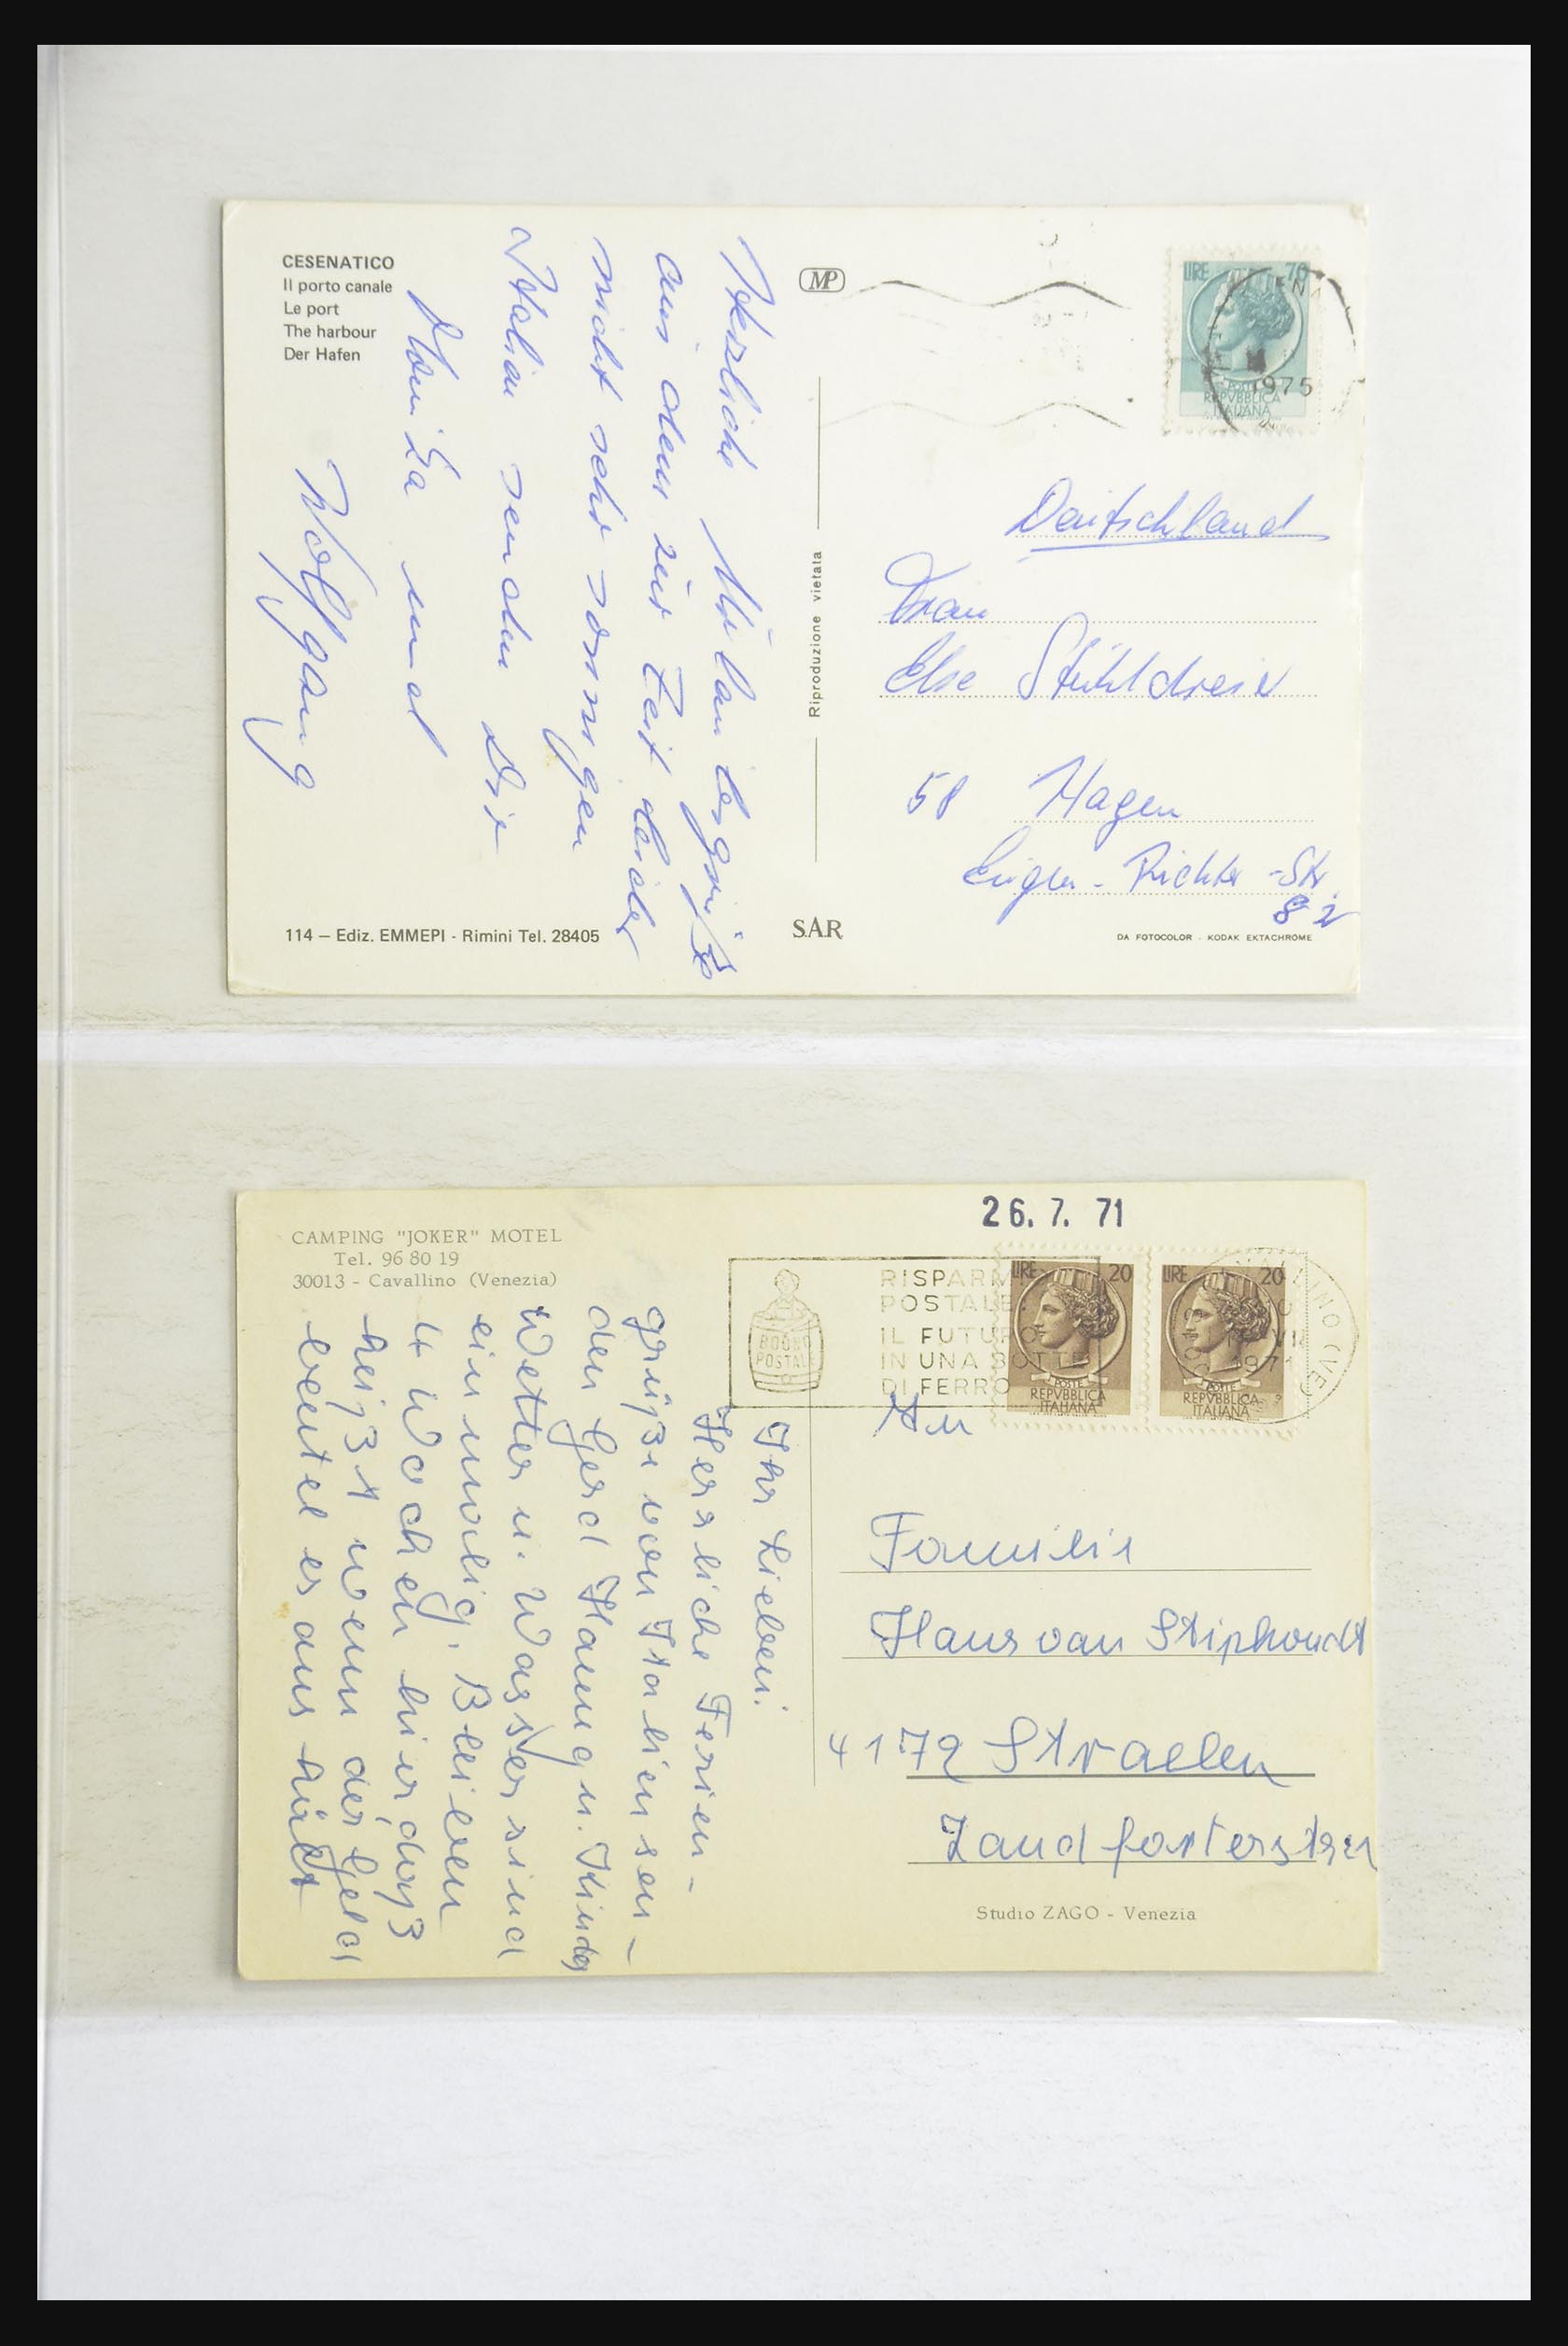 CESENATICO
Il porto canale
Le port
The harbour
Der Hafen
Herzliche Urlaubsgrüße
aus dem zur Zeit leider
nicht sehr sonnigen
Italien senden Dir
Monika und
Wolfgang
114 – Ediz. EMMEPI - Rimini Tel. 28405
MP
Riproduzione vietata
SAR
LIRE 70
1975
POSTE
REPVBBLICA
ITALIANA
Deutschland
Frau
Else Stühldreier
58 Hagen
Eugen-Richter-Str.
82
DA FOTOCOLOR - KODAK EKTACHROME
26. 7. 71
CAMPING "JOKER" MOTEL
Tel. 96 80 19
30013 - Cavallino (Venezia)
Ihr Lieben!
Herzliche Ferien-
grüße von Italien sen-
den Gerd Hanng u. Kinder
Wetter u. Wasser sind
einmalig. Bleiben
4 Wochen hier, das
heißt wenn das Geld
beutel es aus hält
BUONO
POSTALE
RISPARMIO
POSTALE:
IL FUTURO
IN UNA BOTTE
DI FERRO
LIRE 20
POSTE
REPVBBLICA
ITALIANA
LIRE 20
POSTE
REPVBBLICA
ITALIANA
CAVALLINO (VE)
VII
1971
An
Familie
Hans van Stiphoudt
4172 Straelen
Zandforterstr
Studio ZAGO - Venezia